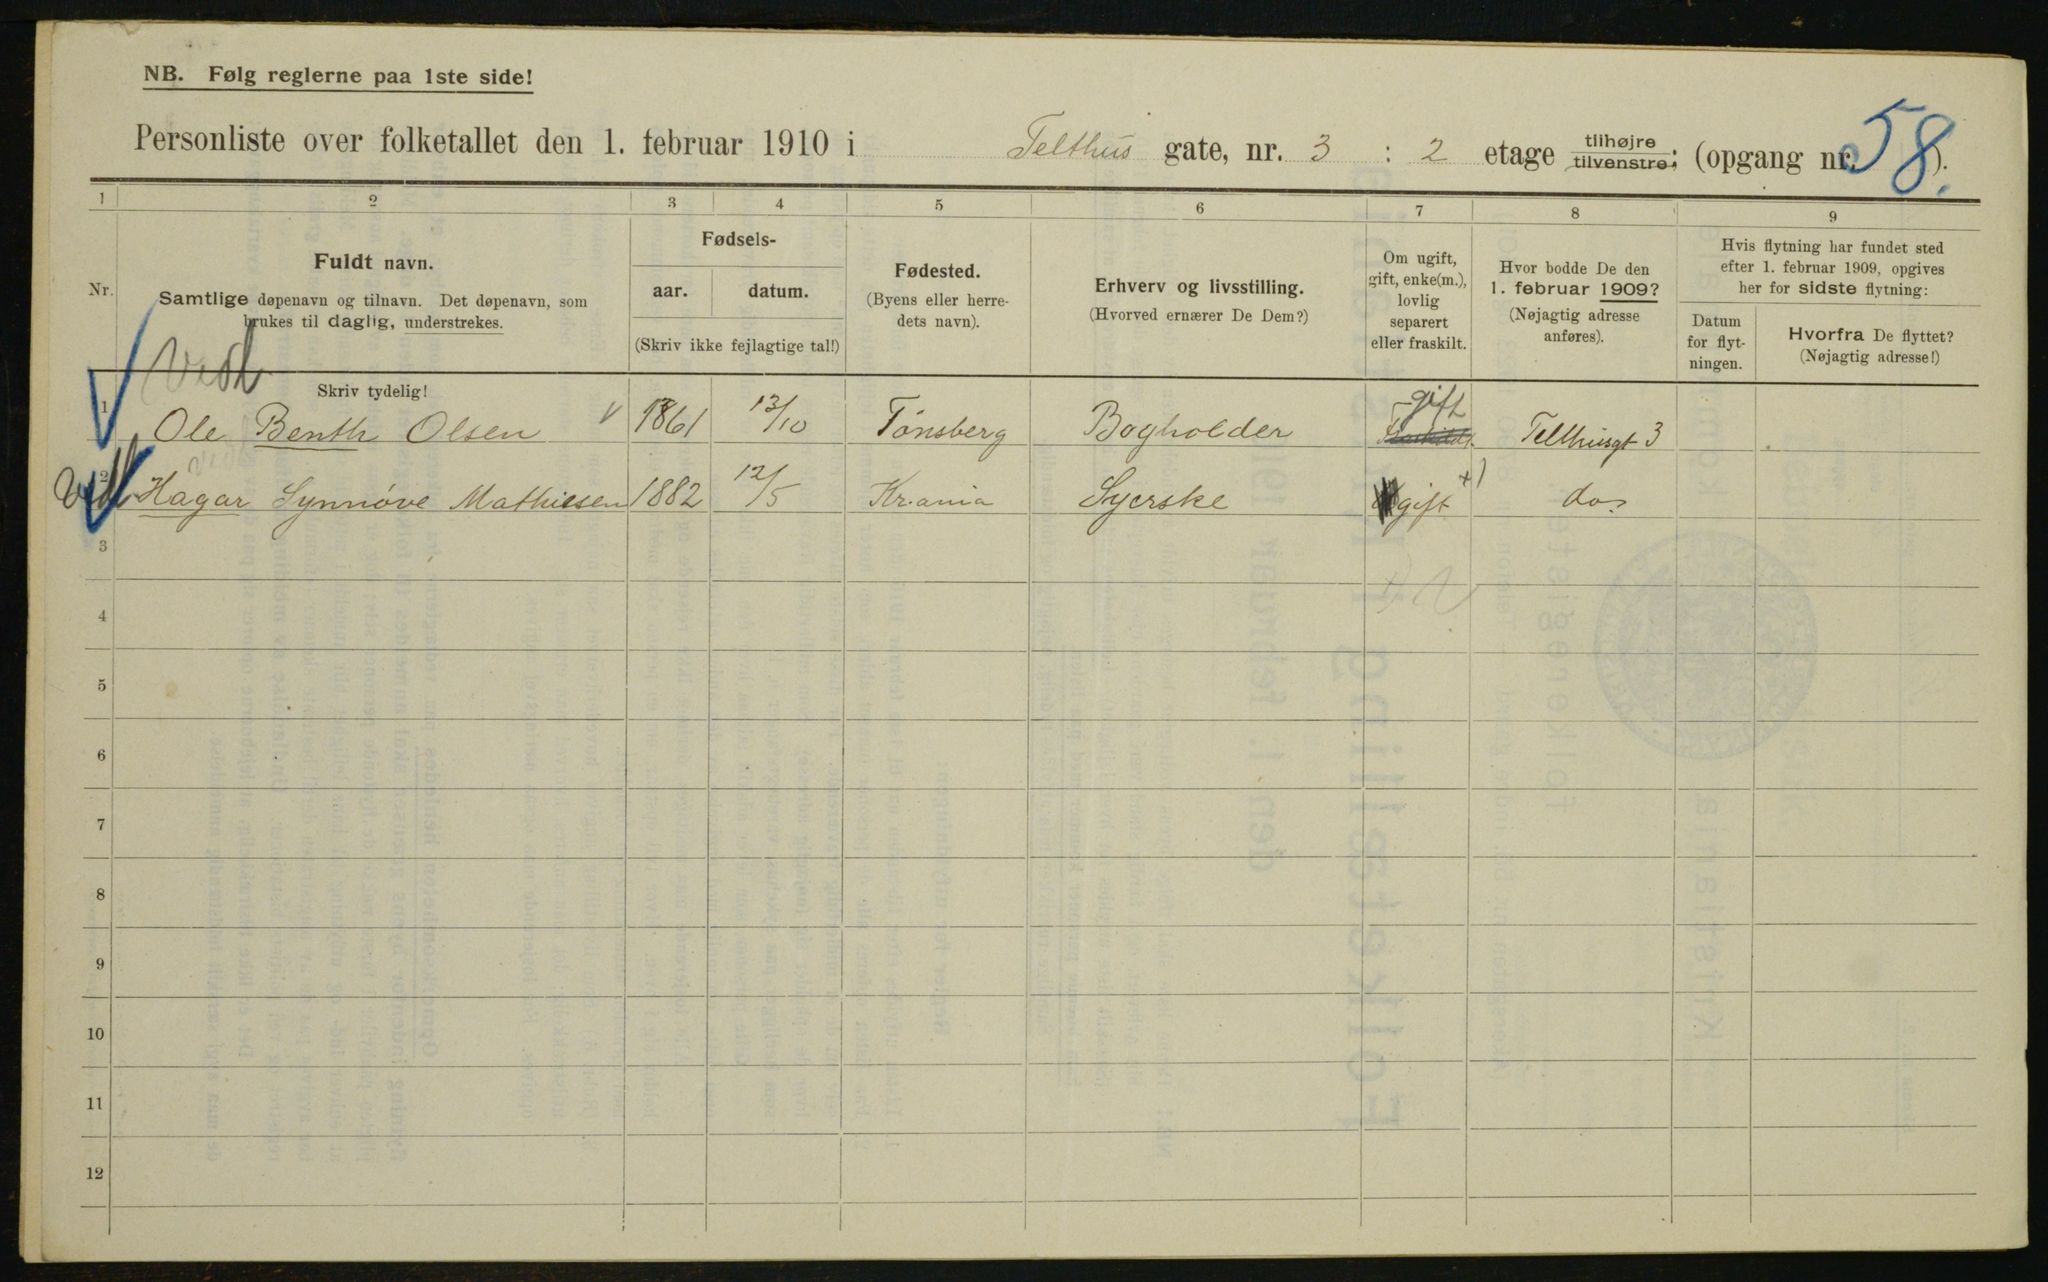 NB. Følg reglerne paa 1ste side!
Personliste over folketallet den 1. februar 1910 i Telthus gate, nr. 3 : 2 etage tilhøjre tilvenstre; (opgang nr. ).
58.
1 2 3 4 5 6 7 8 9
Nr.
Fuldt navn.
Samtlige døpenavn og tilnavn. Det døpenavn, som
brukes til daglig, understrekes.
Skriv tydelig!
Fødsels-
aar. datum.
(Skriv ikke fejlagtige tal!)
Fødested.
(Byens eller herre-
dets navn).
Erhverv og livsstilling.
(Hvorved ernærer De Dem?)
Om ugift,
gift, enke(m.),
lovlig
separert
eller fraskilt.
Hvor bodde De den
1. februar 1909?
(Nøjagtig adresse
anføres).
Hvis flytning har fundet sted
efter 1. februar 1909, opgives
her for sidste flytning:
Datum
for flyt-
ningen.
Hvorfra De flyttet?
(Nøjagtig adresse!)
gift
1 Ole Benth Olsen 1861 13/10 Tønsberg Bogholder Telthusgt 3
2 Hagar Synnøve Mathiesen 1882 12/5 Kr.ania Syerske gift +) do.
3
4
5
6
7
8
9
10
11
12